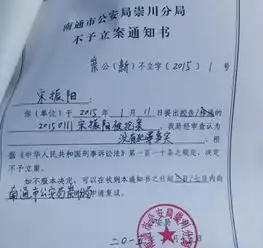 南通市公安局崇川分局
不予立案通知书
崇公(新)不立字〔2015〕1号
宋振阳:
你(单位)于2015年1月11日提出控告/
20150111宋振阳被抢案,我局经审查认为
没有犯罪事实,根
据《中华人民共和国刑事诉讼法》第一百一十条之规定,决定
不予立案。
如不服本决定,可以在收到本通知书之日起 日内向
南通市公安局崇川分局申请复议。